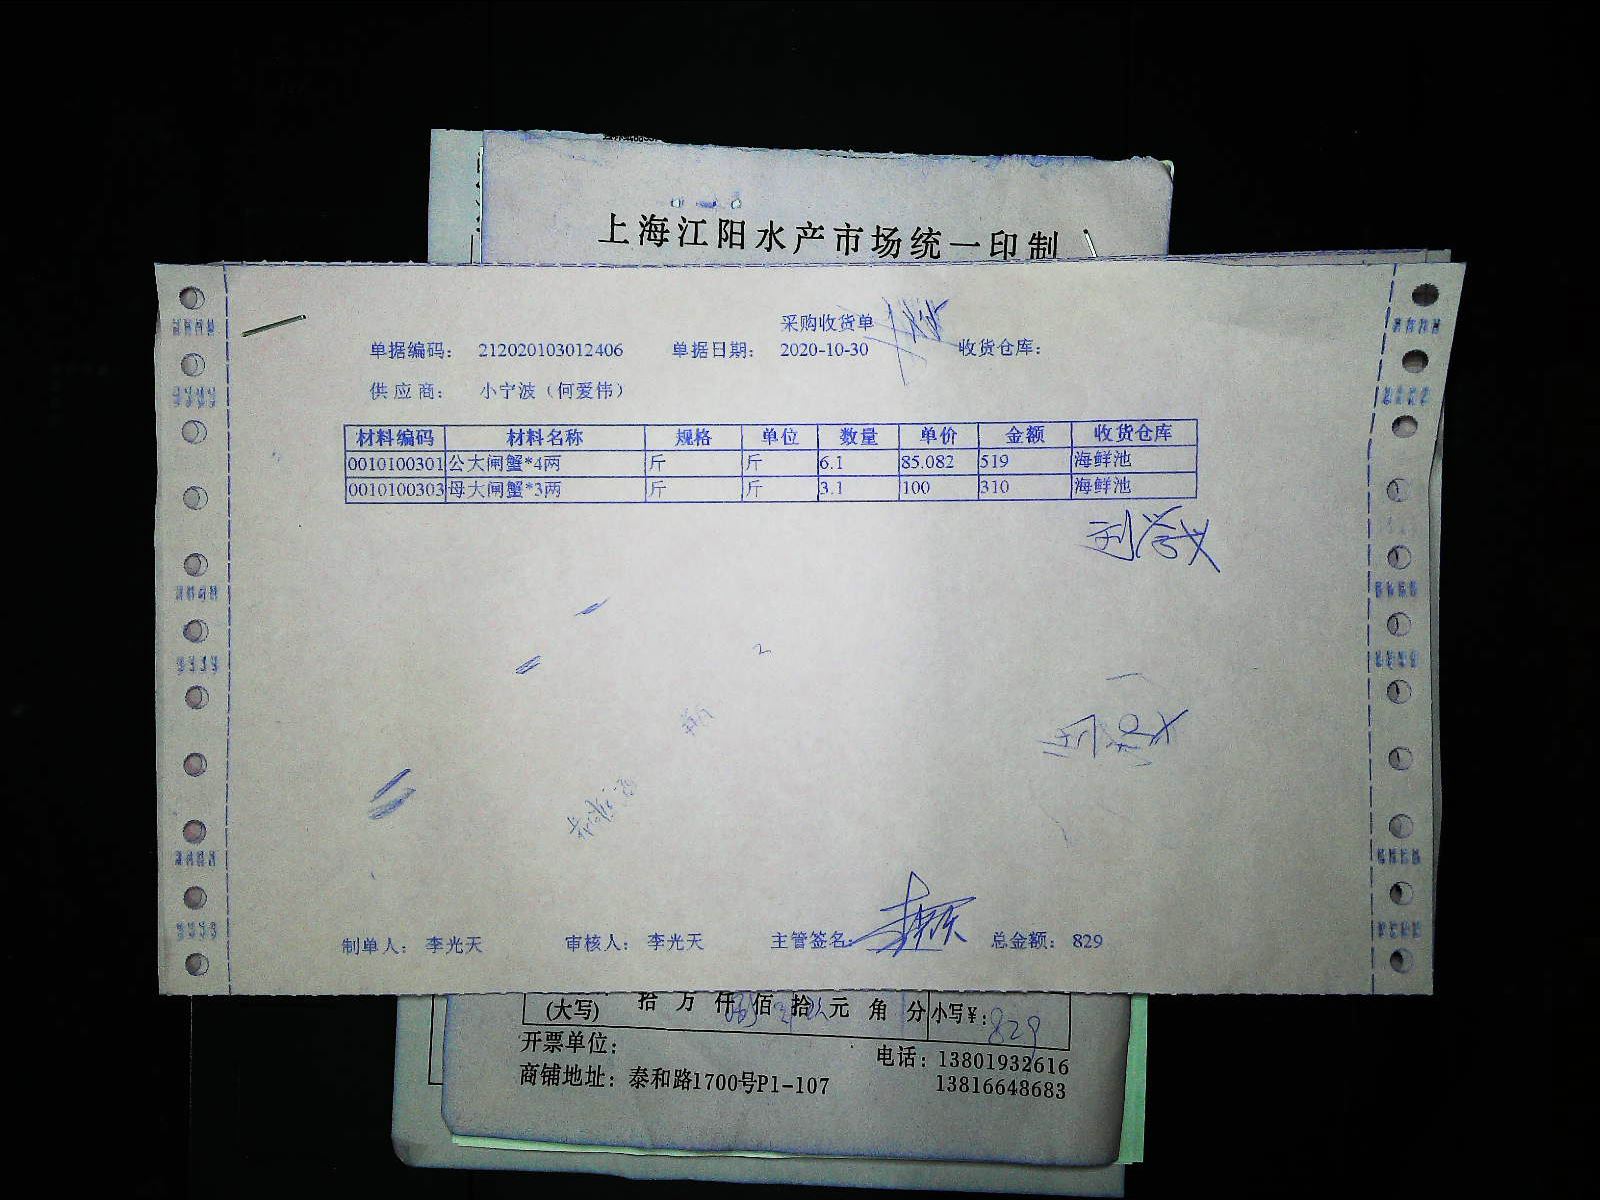 上海江阳水产市场统一印制
采购收货单
单据编码： 212020103012406 单据日期： 2020-10-30 收货仓库：
供应商： 小宁波（何爱伟）
材料编码 材料名称 规格 单位 数量 单价 金额 收货仓库
0010100301 公大闸蟹*4两 斤 斤 6.1 85.082 519 海鲜池
0010100303 母大闸蟹*3两 斤 斤 3.1 100 310 海鲜池
制单人： 李光天 审核人： 李光天 主管签名： 总金额： 829
(大写) 拾 万 仟 佰 拾 元 角 分 小写¥: 829
开票单位：
电话：13801932616
商铺地址：泰和路1700号P1-107
13816648683